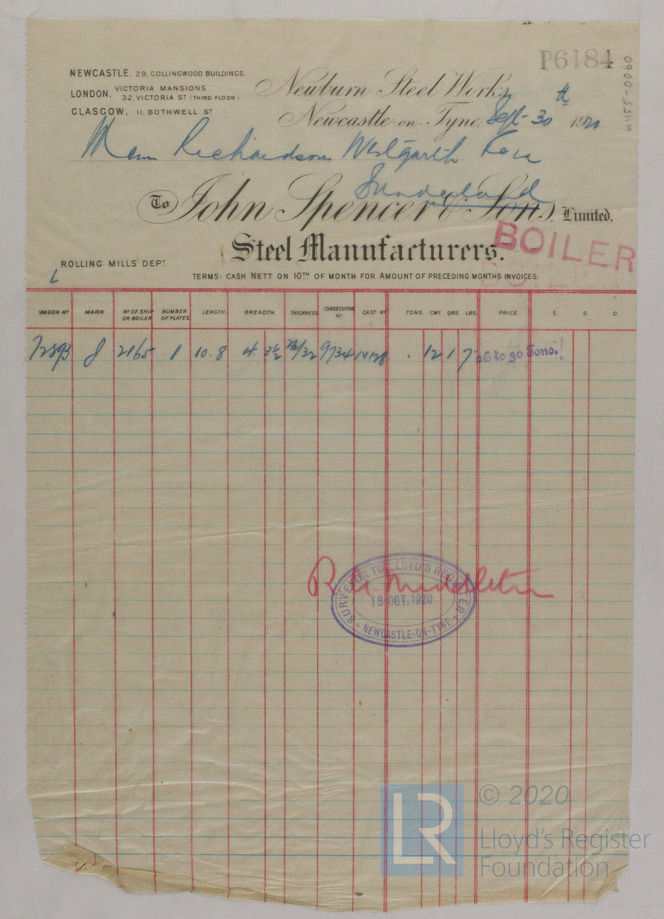 P6184
W1155-0060
NEWCASTLE. 29, COLLINGWOOD BUILDINGS.
LONDON. VICTORIA MANSIONS. 32, VICTORIA ST (THIRD FLOOR)
GLASGOW. 11, BOTHWELL ST
Newburn Steel Works,
Newcastle-on-Tyne, Sept 30th 1920
Richardsons Westgarth
Sunderland
To John Spencer & Sons, Limited.
Steel Manufacturers.
BOILER
ROLLING MILLS DEPT
TERMS: CASH NETT ON 10TH OF MONTH FOR AMOUNT OF PRECEDING MONTHS INVOICES
WAGON No MARK No OF SHIP OR BOILER NUMBER OF PLATES LENGTH BREADTH THICKNESS CONSECUTIVE No CAST No TONS. CWT. QRS. LBS. PRICE. £. S. D.
8 2165 1 10.8 4 3½ 9734 12 1 7 26 to 30 Tons.
R. A. Middleton
SURVEYOR TO LLOYD'S REGISTER
18 OCT. 1920
NEWCASTLE-ON-TYNE
LR
© 2020
Lloyd's Register
Foundation